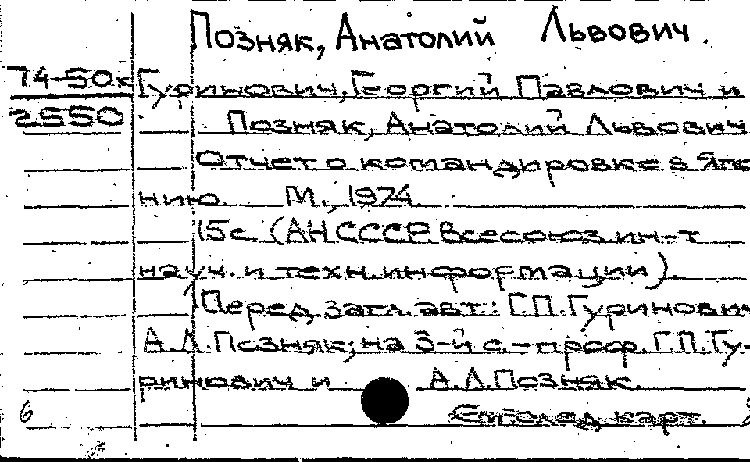 Позняк, Анатолий Львович.
74-50к Гуринович, Георгий Павлович и
2550 Позняк, Анатолий Львович
Отчет о командировке в Япо
нию. М., 1974.
15с. (АН СССР. Всесоюз. ин-т
науч. и техн. информации).
Перед загл. авт.: Г.П. Гуринович
А.Л. Позняк; на 3-й с. – проф. Г.П. Гу-
ринович и А.Л. Позняк.
карт.
6